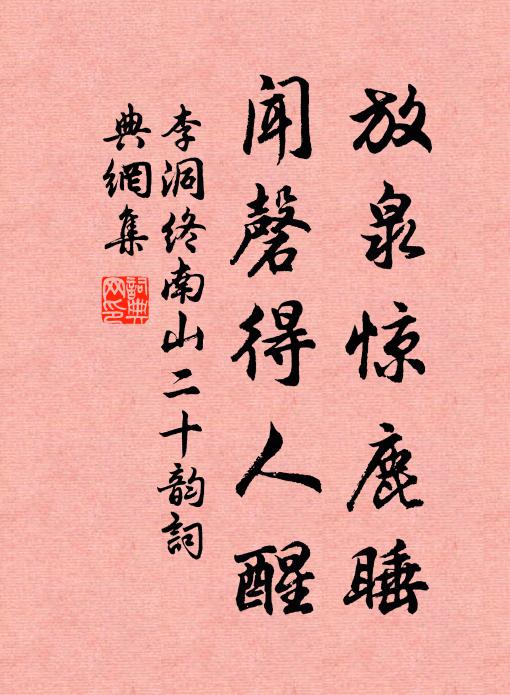 放泉惊鹿睡
闻磬得人醒
李洞终南山二十韵詞
典網集
詞典
网印